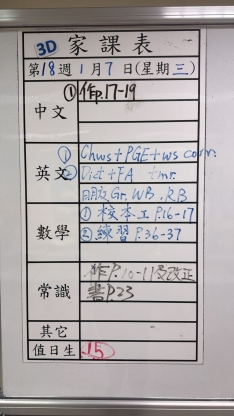 3D 家課表
第18週1月7日(星期三)
中文 ①作p.17-19
① Chws+PGE+ws corr.
英文 ② Dict+FA tmr.
Gr. WB, RB
① 校本工 P.16-17
數學 ②練習 P.36-37
作P.10-11及改正
常識 書P.23
其它
值日生 15